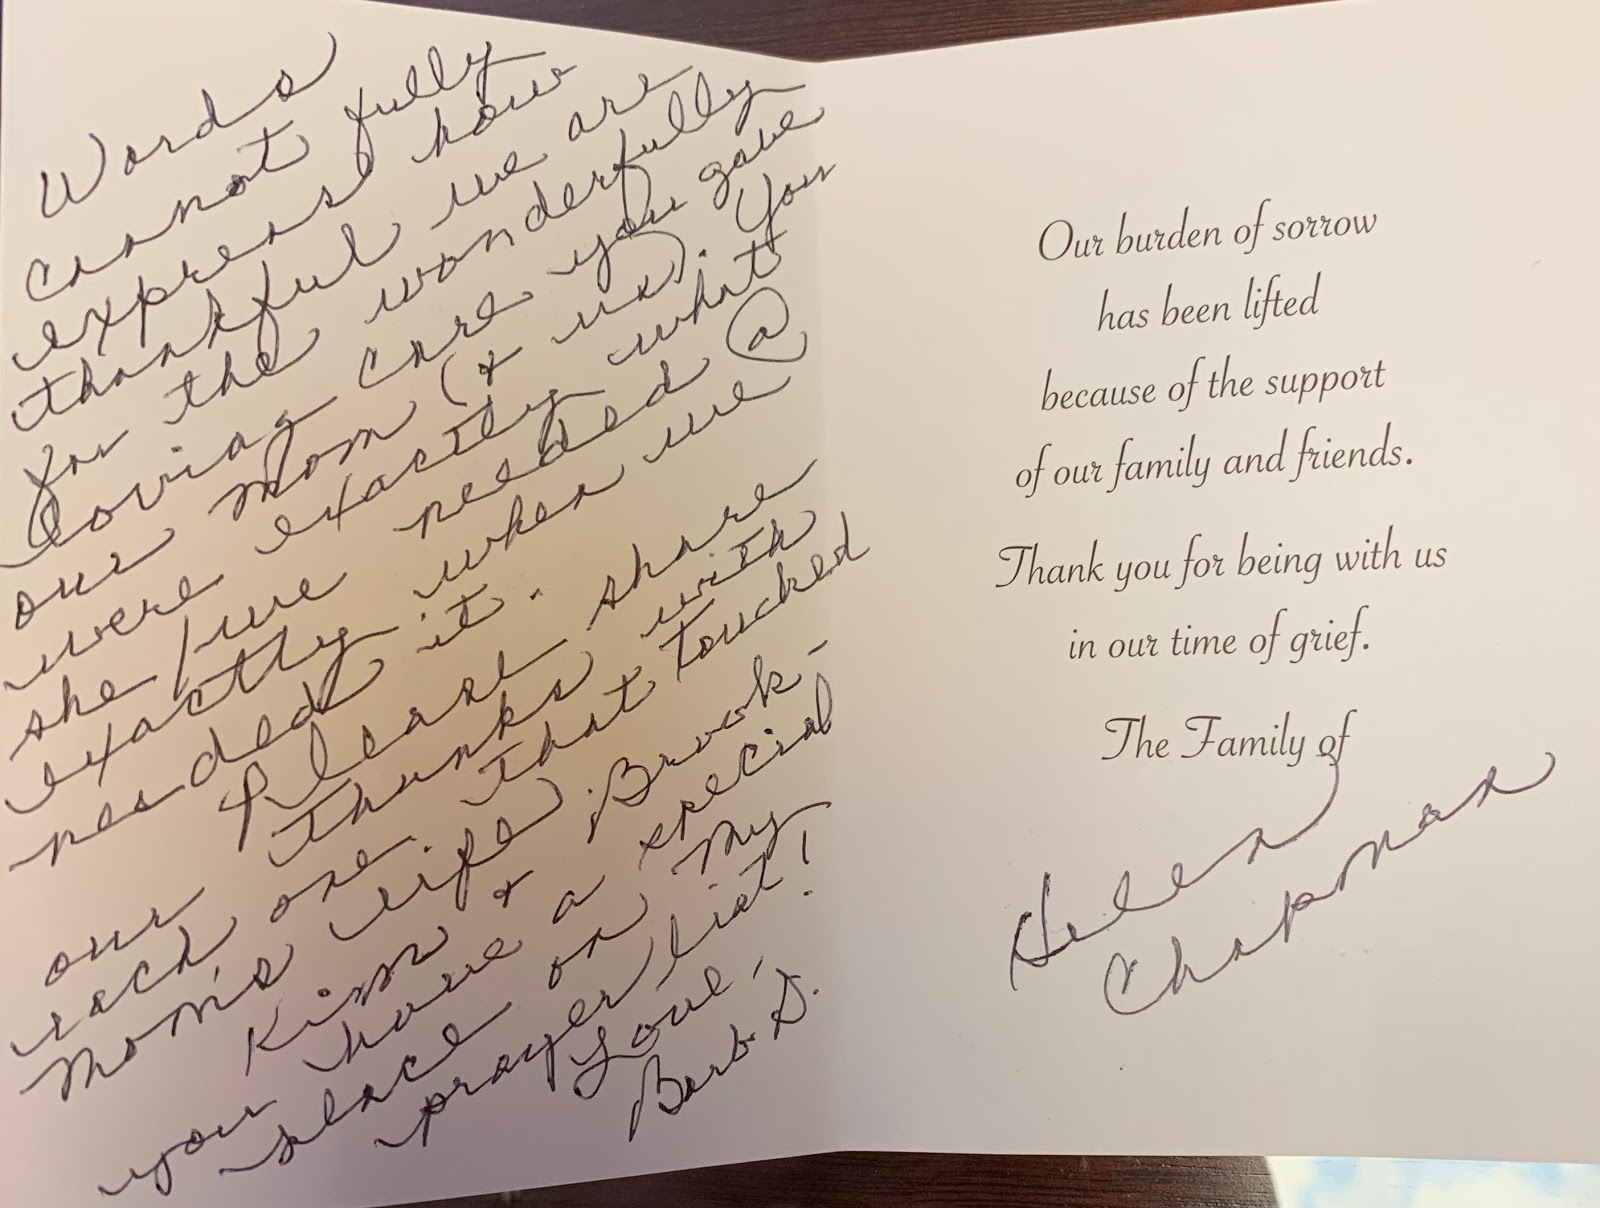 Words
cannot fully
express how
thankful we are
for the wonderfully
loving care you gave
our Mom (& us). You
were exactly what
she/we needed @
exactly when we
needed it.
Please share
our thanks with
each one that touched
Mom's life. Brook-
Kim &
your have a special
place on my
prayer list!
Love,
Barb D.
Our burden of sorrow
has been lifted
because of the support
of our family and friends.
Thank you for being with us
in our time of grief.
The Family of
Helen
Chapman